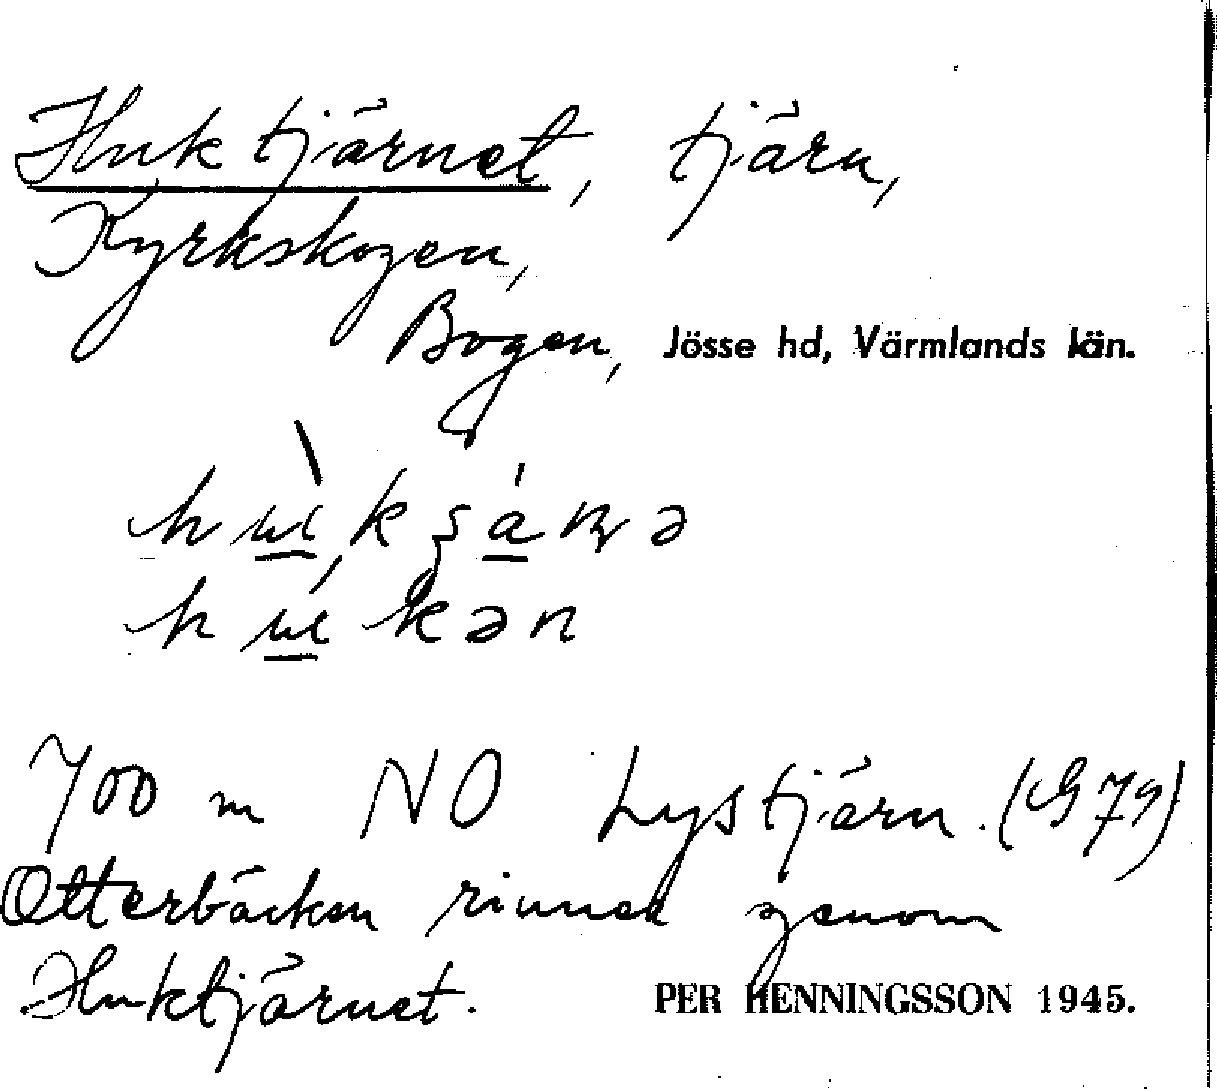 Huktjärnet, tjärn,
Kyrkskogen,
Bogen, Jösse hd, Värmlands län.
700 m NO Lystjärn. (G 79)
Otterbäcken rinner genom
Huktjärnet. PER HENNINGSSON 1945.